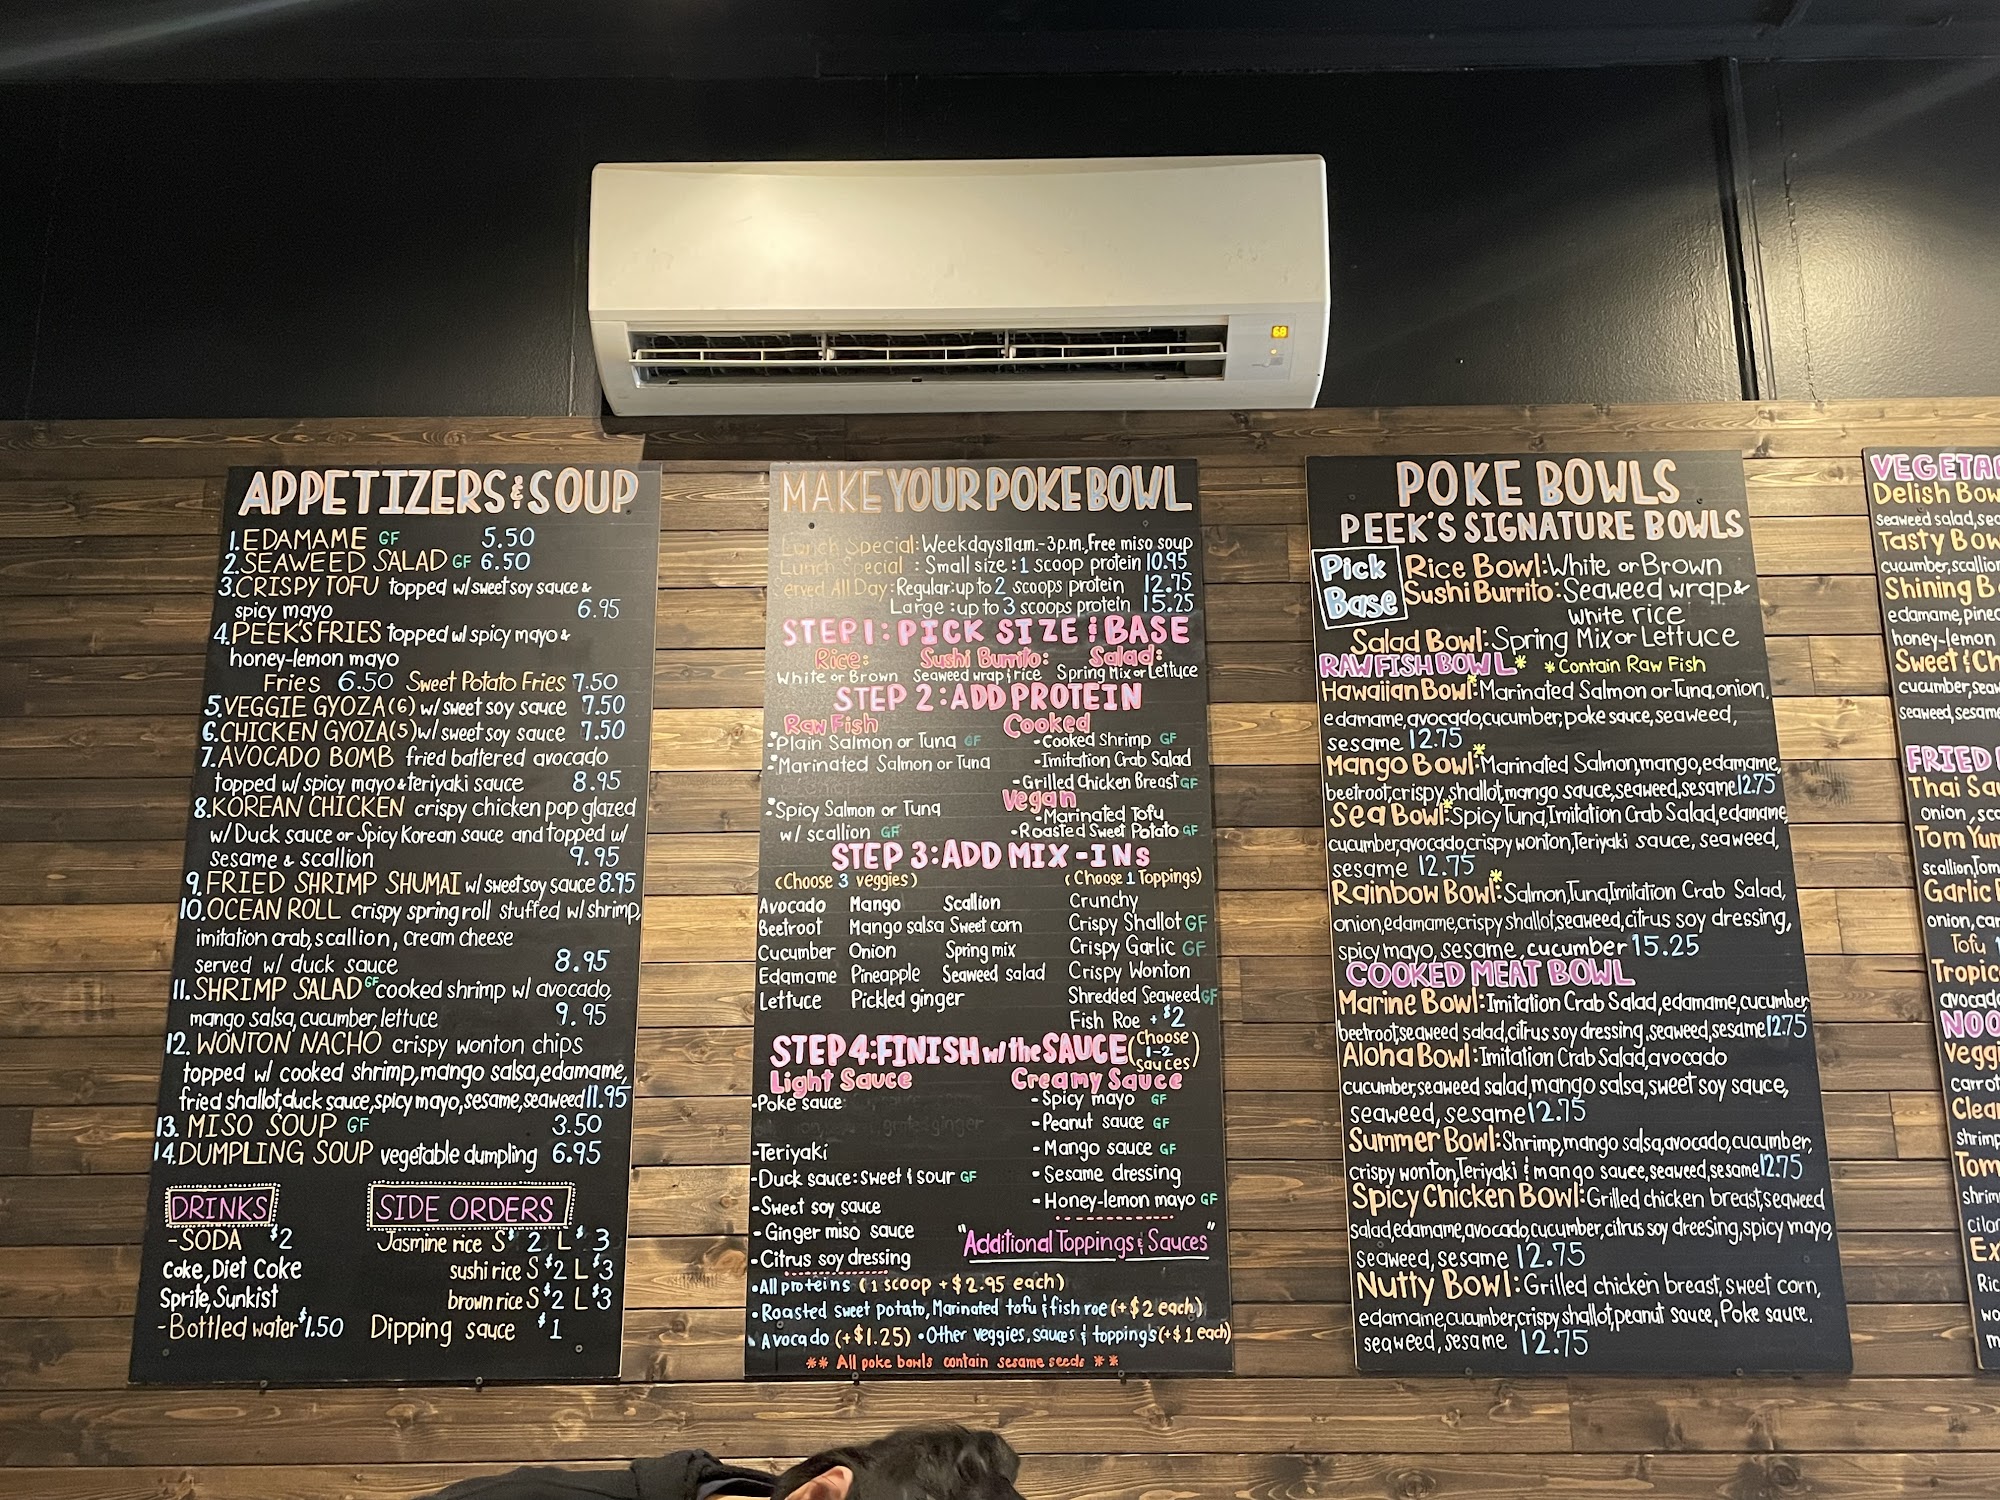 68
APPETIZERS & SOUP
1. EDAMAME GF 5.50
2. SEAWEED SALAD GF 6.50
3. CRISPY TOFU topped w/ sweet soy sauce &
spicy mayo 6.95
4. PEEK'S FRIES topped w/ spicy mayo &
honey-lemon mayo
Fries 6.50 Sweet Potato Fries 7.50
5. VEGGIE GYOZA (6) w/ sweet soy sauce 7.50
6. CHICKEN GYOZA (5) w/ sweet soy sauce 7.50
7. AVOCADO BOMB fried battered avocado
topped w/ spicy mayo & teriyaki sauce 8.95
8. KOREAN CHICKEN crispy chicken pop glazed
w/ Duck sauce or Spicy Korean sauce and topped w/
sesame & scallion 9.95
9. FRIED SHRIMP SHUMAI w/ sweet soy sauce 8.95
10. OCEAN ROLL crispy spring roll stuffed w/ shrimp,
imitation crab, scallion, cream cheese
served w/ duck sauce 8.95
11. SHRIMP SALAD GF cooked shrimp w/ avocado,
mango salsa, cucumber, lettuce 9.95
12. WONTON NACHO crispy wonton chips
topped w/ cooked shrimp, mango salsa, edamame,
fried shallot, duck sauce, spicy mayo, sesame, seaweed 11.95
13. MISO SOUP GF 3.50
14. DUMPLING SOUP vegetable dumpling 6.95
DRINKS
-SODA $2
Coke, Diet Coke
Sprite, Sunkist
-Bottled water $1.50
SIDE ORDERS
Jasmine rice S $2 L $3
sushi rice S $2 L $3
brown rice S $2 L $3
Dipping sauce $1
MAKE YOUR POKE BOWL
Lunch Special: Weekdays 11 am.-3 p.m., Free miso soup
Lunch Special : Small size : 1 scoop protein 10.95
Served All Day: Regular: up to 2 scoops protein 12.75
Large : up to 3 scoops protein 15.25
STEP 1: PICK SIZE & BASE
Rice: Sushi Burrito: Salad:
White or Brown Seaweed wrap & rice Spring Mix or Lettuce
STEP 2: ADD PROTEIN
Raw Fish
*-Plain Salmon or Tuna GF
*-Marinated Salmon or Tuna
*-Spicy Salmon or Tuna
w/ scallion GF
Cooked
-Cooked Shrimp GF
-Imitation Crab Salad
-Grilled Chicken Breast GF
Vegan
-Marinated Tofu
-Roasted Sweet Potato GF
STEP 3: ADD MIX-INS
(Choose 3 veggies) (Choose 1 Toppings)
Avocado Mango Scallion Crunchy
Beetroot Mango salsa Sweet corn Crispy Shallot GF
Cucumber Onion Spring mix Crispy Garlic GF
Edamame Pineapple Seaweed salad Crispy Wonton
Lettuce Pickled ginger Shredded Seaweed GF
Fish Roe + $2
STEP 4: FINISH w/ the SAUCE (Choose 1-2 sauces)
Light Sauce
-Poke sauce
-Teriyaki
-Duck sauce: sweet & sour GF
-Sweet soy sauce
-Ginger miso sauce
-Citrus soy dressing
Creamy Sauce
-Spicy mayo GF
-Peanut sauce GF
-Mango sauce GF
-Sesame dressing
-Honey-lemon mayo GF
"Additional Toppings & Sauces"
•All proteins (1 scoop + $2.95 each)
•Roasted sweet potato, Marinated tofu & fish roe (+$2 each)
•Avocado (+$1.25) •Other veggies, sauces & toppings (+$1 each)
** All poke bowls contain sesame seeds **
POKE BOWLS
PEEK'S SIGNATURE BOWLS
Pick Base
Rice Bowl: White or Brown
Sushi Burrito: Seaweed wrap &
white rice
Salad Bowl: Spring Mix or Lettuce
RAW FISH BOWL* *Contain Raw Fish
Hawaiian Bowl*: Marinated Salmon or Tuna, onion,
edamame, avocado, cucumber, poke sauce, seaweed,
sesame 12.75
Mango Bowl*: Marinated Salmon, mango, edamame,
beetroot, crispy shallot, mango sauce, seaweed, sesame 12.75
Sea Bowl*: Spicy Tuna, Imitation Crab Salad, edamame
cucumber, avocado, crispy wonton, Teriyaki sauce, seaweed,
sesame 12.75
Rainbow Bowl*: Salmon, Tuna, Imitation Crab Salad,
onion, edamame, crispy shallot, seaweed, citrus soy dressing,
spicy mayo, sesame, cucumber 15.25
COOKED MEAT BOWL
Marine Bowl: Imitation Crab Salad, edamame, cucumber
beetroot, seaweed salad, citrus soy dressing, seaweed, sesame 12.75
Aloha Bowl: Imitation Crab Salad, avocado
cucumber, seaweed salad, mango salsa, sweet soy sauce,
seaweed, sesame 12.75
Summer Bowl: Shrimp, mango salsa, avocado, cucumber,
crispy wonton, Teriyaki & mango sauce, seaweed, sesame 12.75
Spicy Chicken Bowl: Grilled chicken breast, seaweed
salad, edamame, avocado, cucumber, citrus soy dreesing, spicy mayo,
seaweed, sesame 12.75
Nutty Bowl: Grilled chicken breast, sweet corn,
edamame, cucumber, crispy shallot, peanut sauce, Poke sauce,
seaweed, sesame 12.75
VEGETA
Delish Bow
seaweed salad, sea
Tasty Bow
cucumber, scallion
Shining B
edamame, pine
honey-lemon
Sweet & Ch
cucumber, sea
seaweed, sesame
FRIED
Thai Sa
onion, sc
Tom Yum
scallion, Tom
Garlic
onion, car
Tofu
Tropic
avocado
NOO
Veggi
carrot
Clea
shrimp
Tom
shrim
cilan
Ex
Ric
wo
m